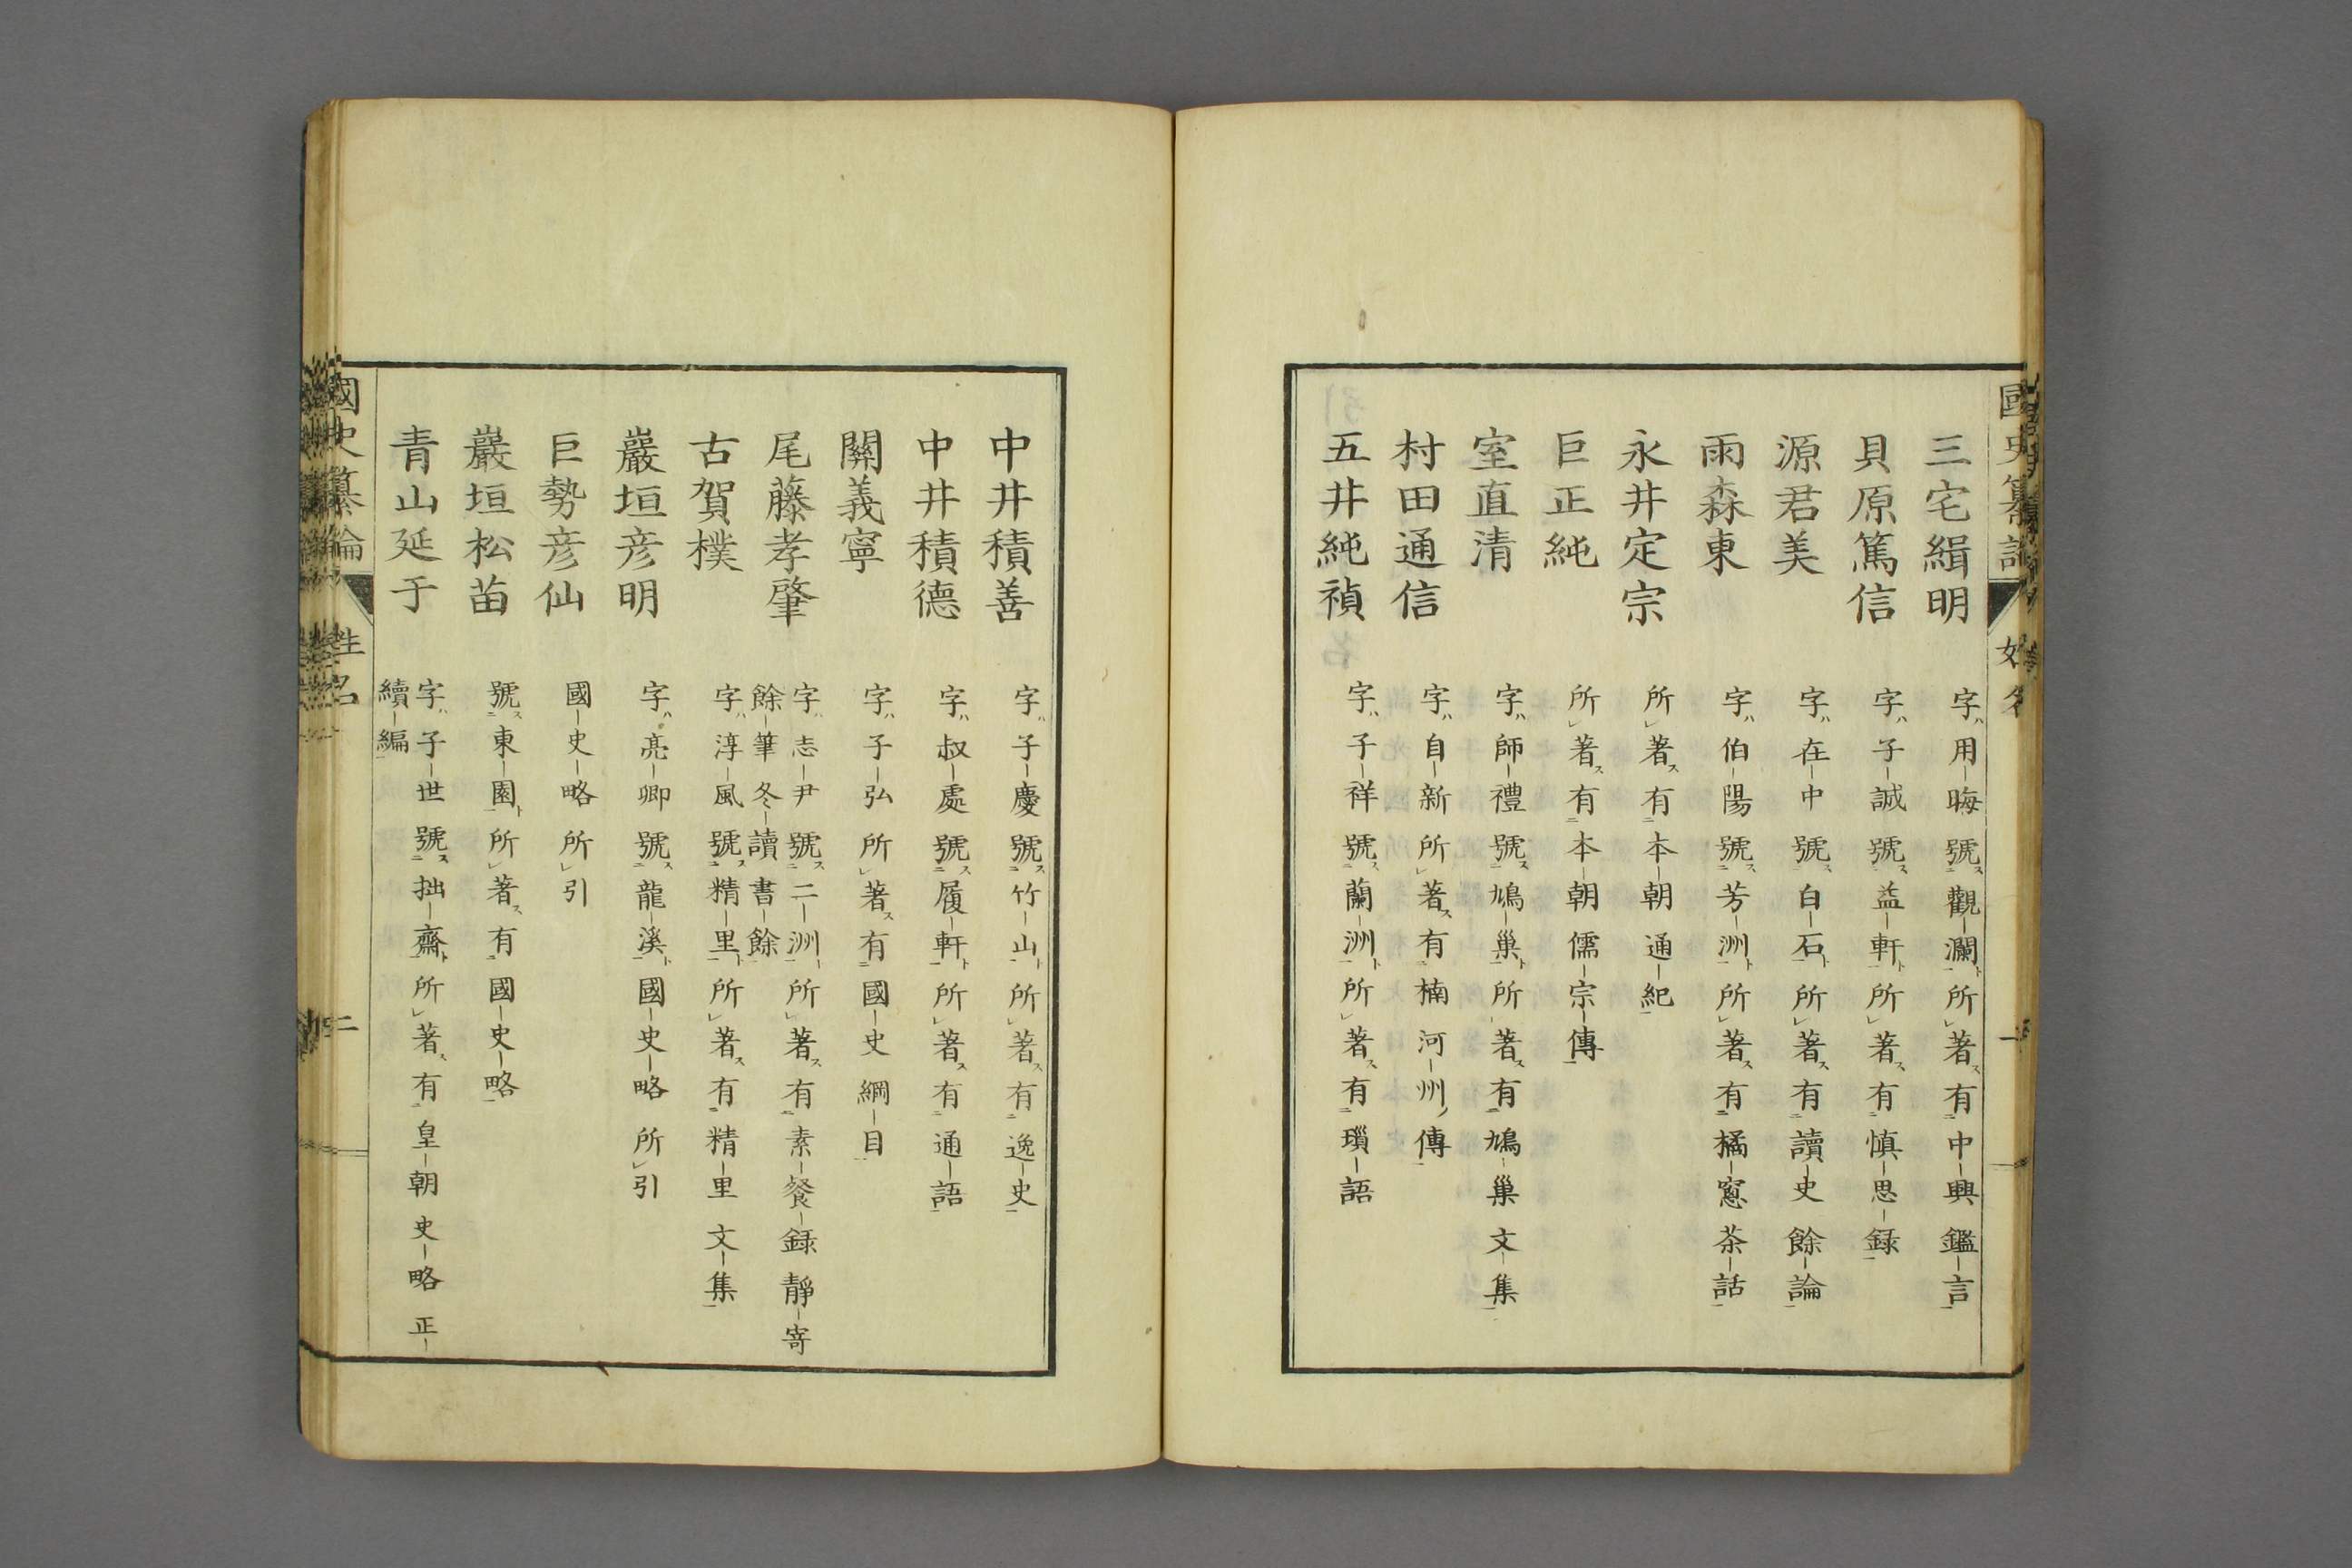 三宅緝明 字用晦號觀瀾所著有中興鑑言
貝原篤信 字子誠號益軒所著有慎思録
源君美 字在中號白石所著有讀史餘論
雨森東 字伯陽號芳洲所著有橘窓茶話
永井定宗 所著有本朝通紀
巨正純 所著有本朝儒宗傳
室直清 字師禮號鳩巢所著有鳩巢文集
村田通信 字自新所著有楠河州傳
五井純禎 字子祥號蘭洲所著有瑣語
中井積善 字子慶號竹山所著有逸史
中井積德 字叔處號履軒所著有通語
關義寧 字子弘所著有國史綱目
尾藤孝肇 字志尹號二洲所著有素餐録靜寄
餘筆冬讀書餘
古賀樸 字淳風號精里所著有精里文集
巖垣彦明 字亮卿號龍溪國史略所引
巨勢彦仙 國史略所引
巖垣松苗 號東園所著有國史略
青山延于 字子世號拙齋所著有皇朝史略正
續編
國史纂論 姓名 二